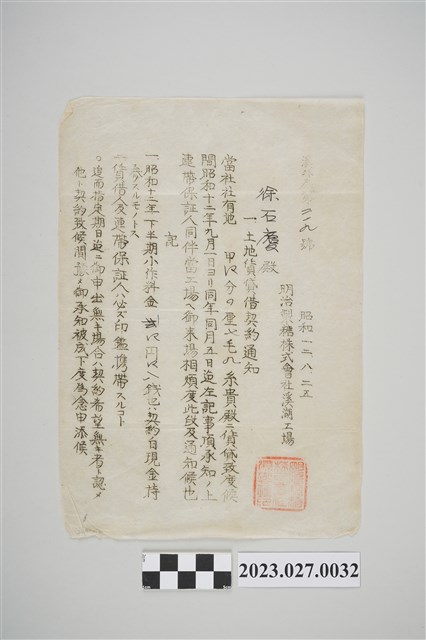 二一九號
昭和一二、八、二五
明治製糖株式會社溪湖工場
徐石慶殿
一、土地賃貸借契約通知
當社社有地 甲 分 厘七毛九糸貴殿ニ賃貸致度候
間昭和十二年九月一日ヨリ同年同月五日迄左記事項承知ノ上
連帶保証人同伴當工場ヘ御來場相煩度此段及通知候也
記
一、昭和十二年下半期小作料金 円 八錢 ハ契約日現金持
参スルモノトス
一、賃借人及連帶保証人ハ必ズ印鑑携帶スルコト
追而指定期日迄ニ御申出無キ場合ハ契約希望無キ者ト認メ
他ト契約致候間 御承知被成下度為念申添候
2023.027.0032